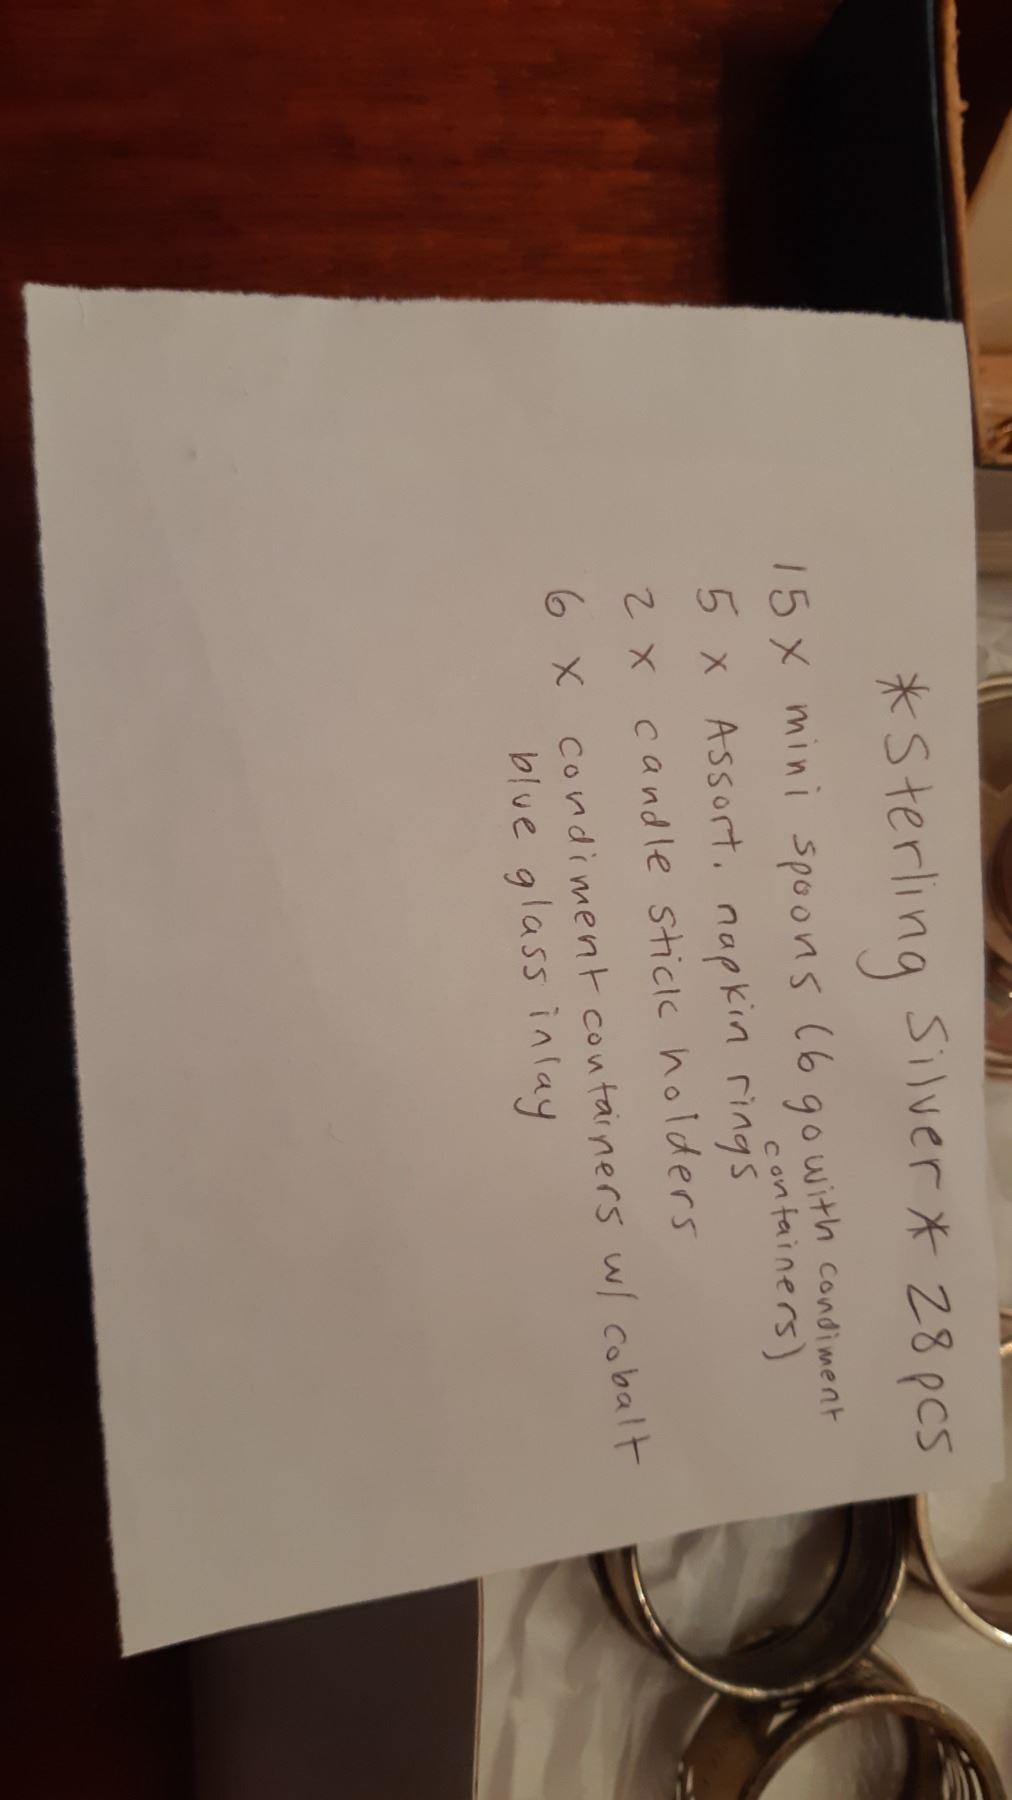 *Sterling Silver* 28pcs
15x mini spoons (6 go with condiment
containers)
5 x Assort. napkin rings
2 x candle stick holders
6 x condiment containers w/ cobalt
blue glass inlay